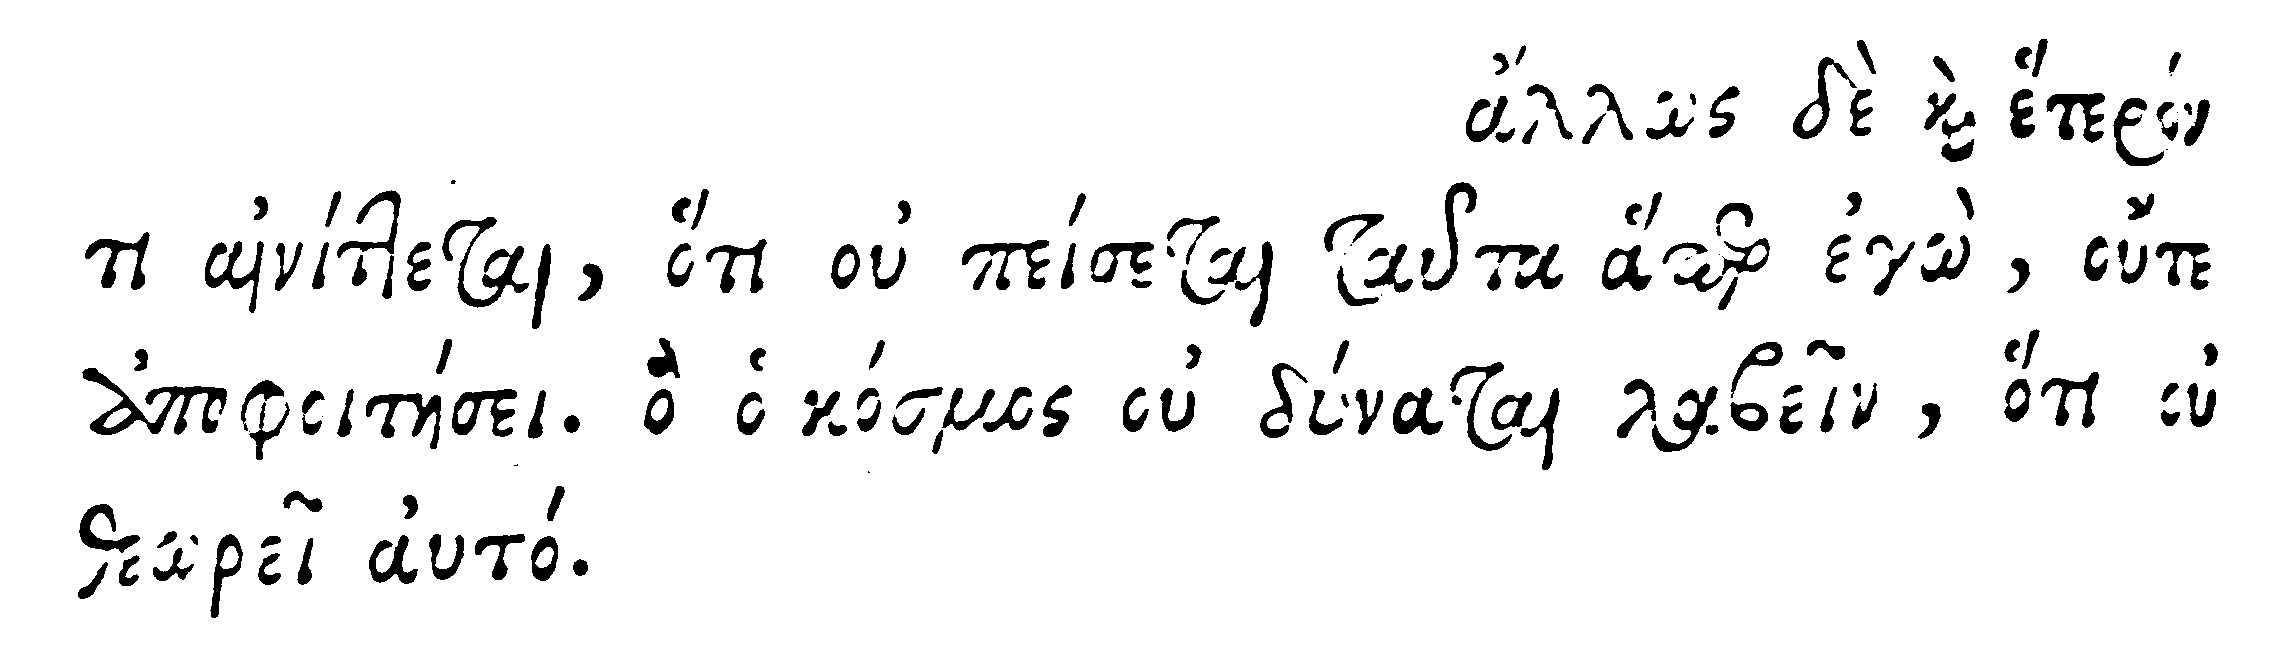 ἄλλως δὲ καὶ ἕτερόν
τι αἰνίττεται, ὅτι οὐ πείσεται ταῦτα ἅπερ ἐγὼ, οὔτε
ἀποφοιτήσει. ὃ ὁ κόσμος οὐ δύναται λαβεῖν, ὅτι οὐ
θεωρεῖ αὐτό.